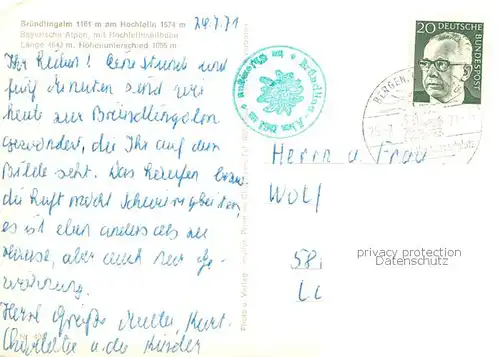 Bründlingalm 1161 m am Hochfelln 1674 m
Bayerische Alpen, mit Hochfellnseilbahn
Länge 4643 m, Höhenunterschied 1055 m
24.7.71
Ihr Lieben! Eine Stunde und
fünf Minuten sind wir
heute zur Bründlingalm
gewandert, die Ihr auf dem
Bilde seht. Das Laufen bzw.
die Luft macht Schwierigkeiten,
es ist eben anders als zu
Hause, aber auch nur Ge-
wöhnung.
Herzl. Grüße Mutti, Kurt
u. die Kinder
Bründling-Alm
20
DEUTSCHE
BUNDESPOST
BERGEN
Herrn u. Frau
Wolf
58
privacy protection
Datenschutz
Foto u. Verlag